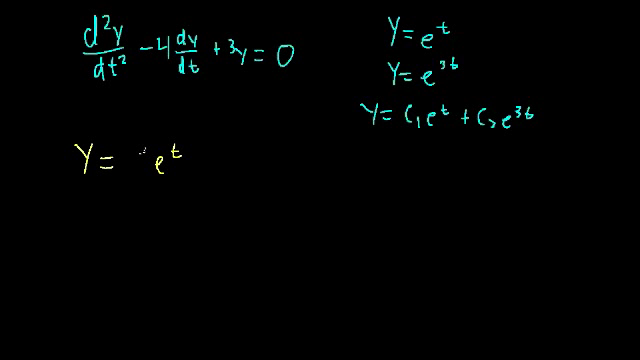 d²y/dt² - 4 dy/dt + 3y = 0
y = e^t
y = e^{3t}
y = c₁e^t + c₂e^{3t}
y = e^t